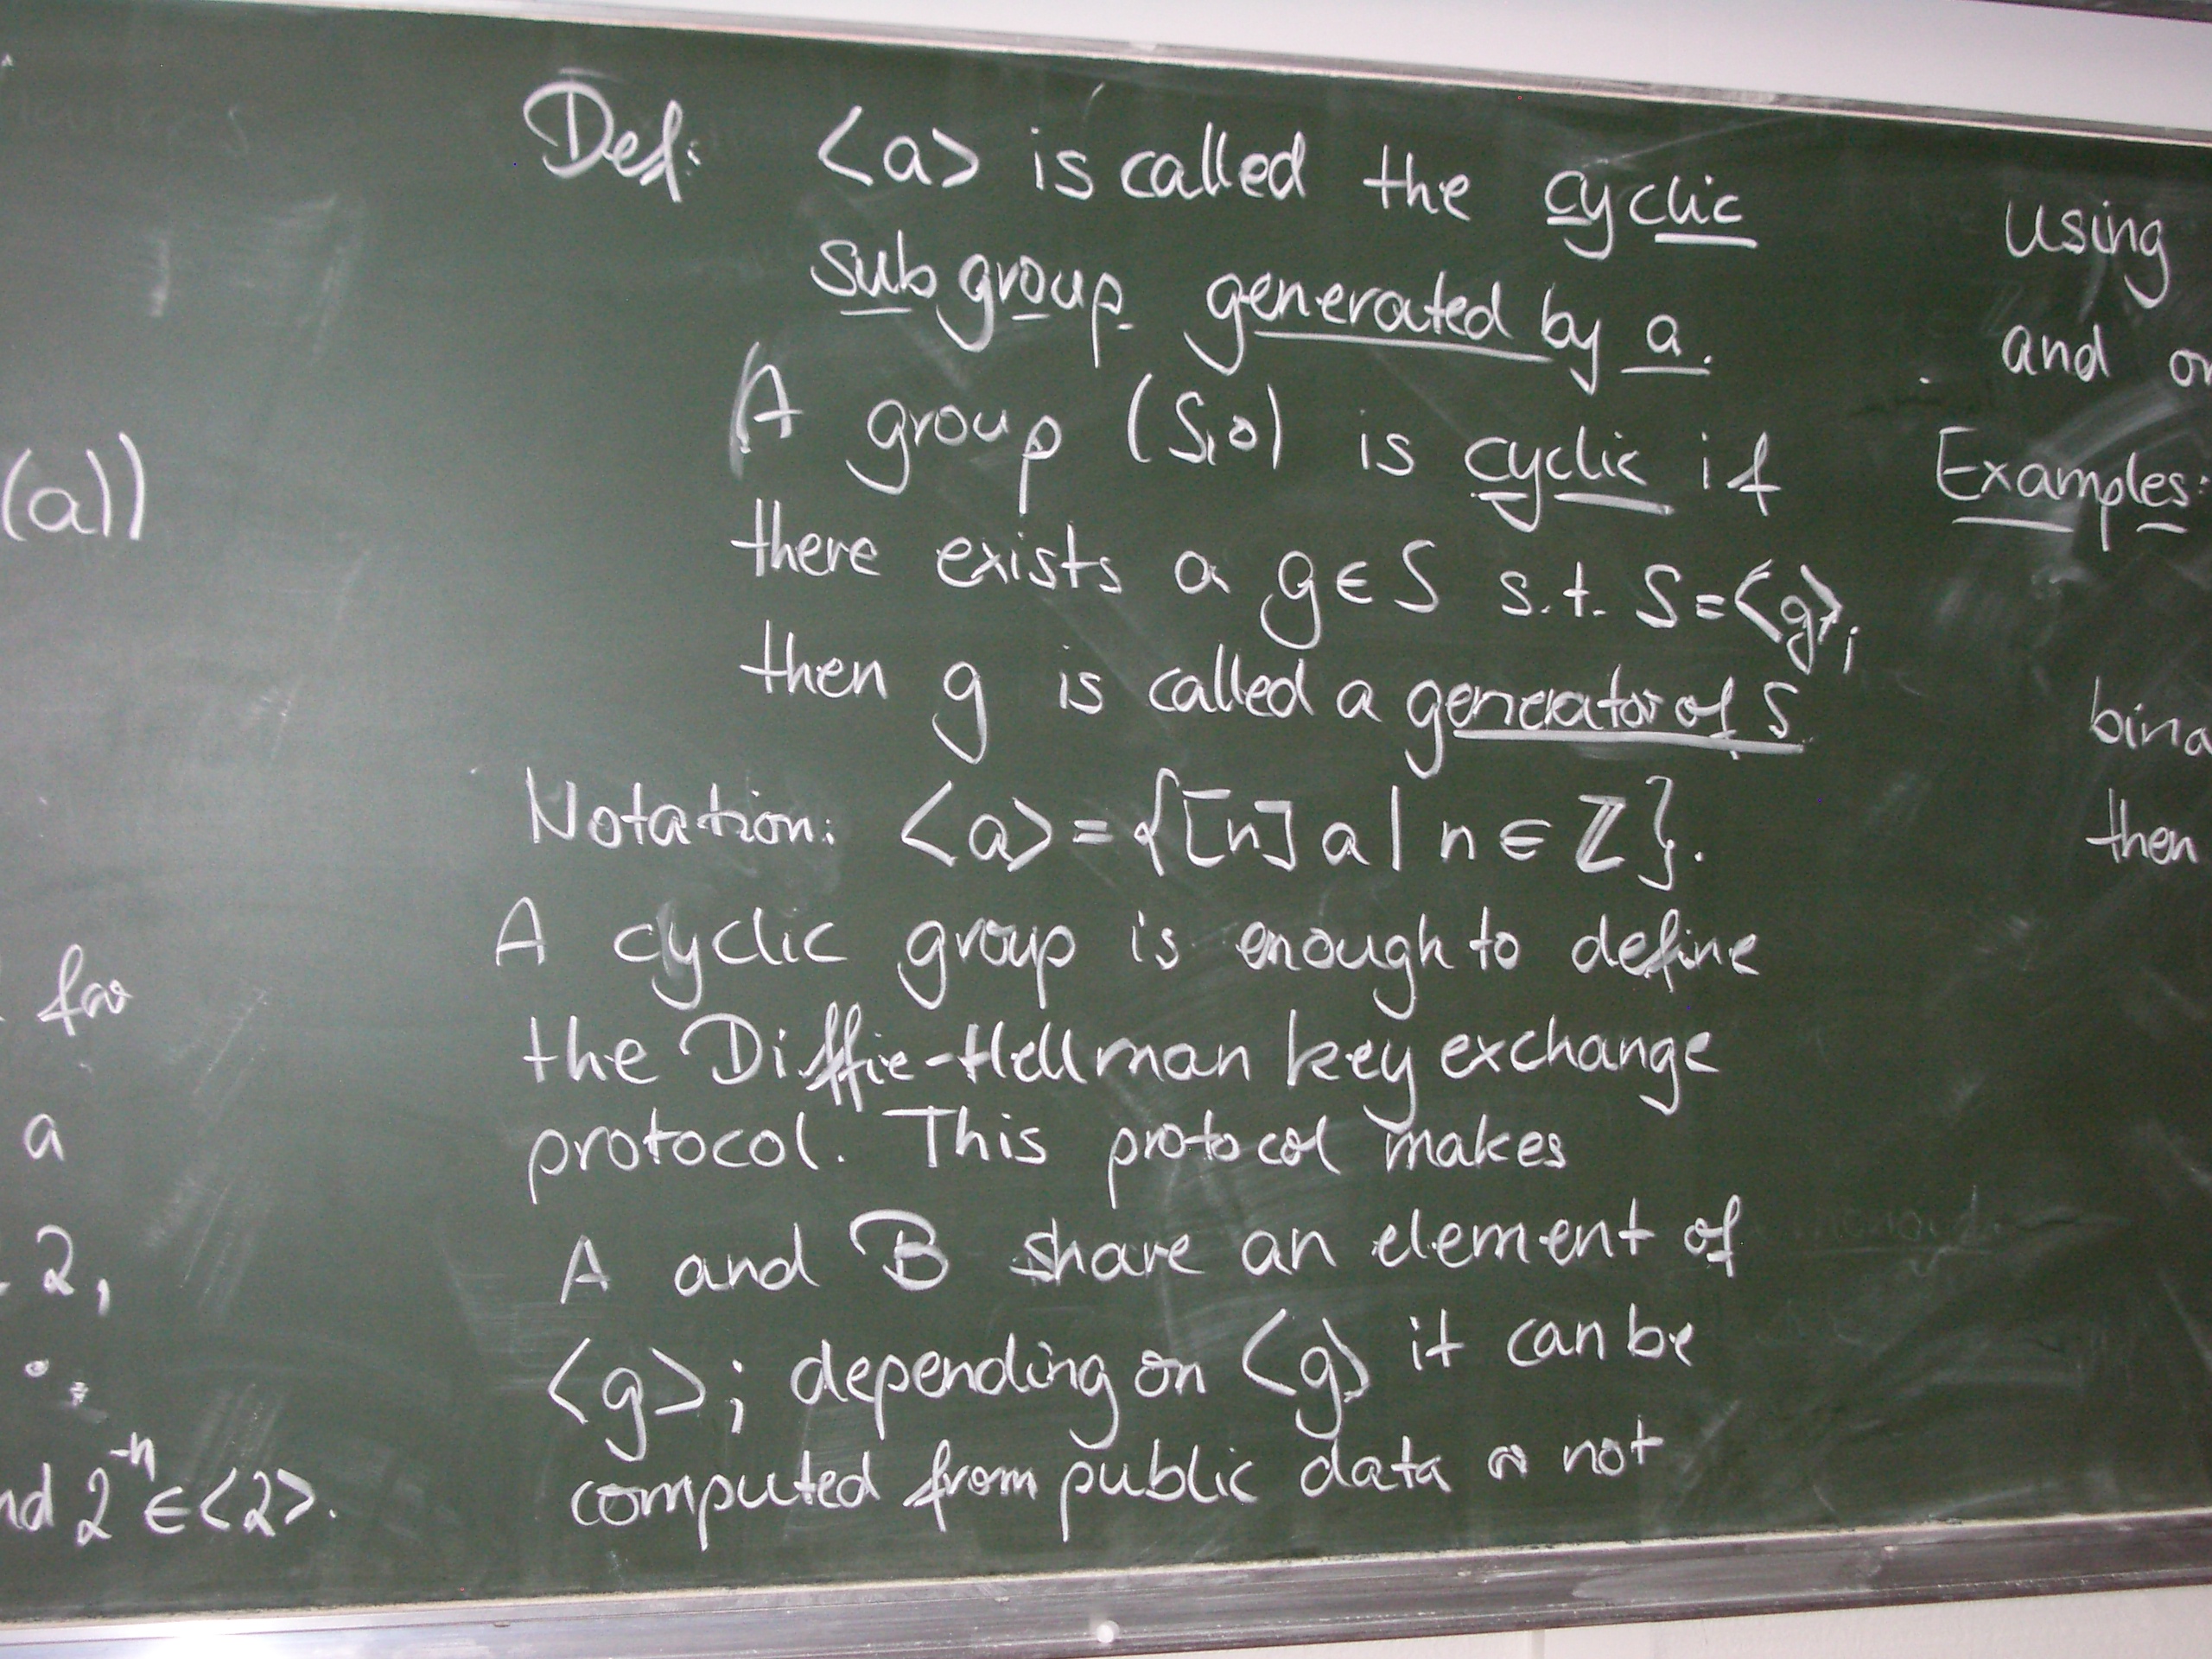 (a))
for
a
2,
nd 2^-n ∈ <2>.
Def: <a> is called the cyclic
subgroup generated by a.
A group (S,∘) is cyclic if
there exists a g∈S s.t. S=<g>;
then g is called a generator of S
Notation: <a> = {[n] a | n ∈ ℤ}.
A cyclic group is enough to define
the Diffie-Hellman key exchange
protocol. This protocol makes
A and B share an element of
<g>; depending on <g> it can be
computed from public data or not
using
and
Examples:
bina
then